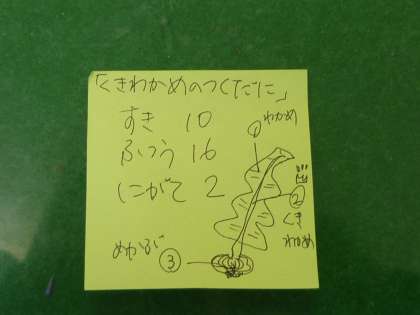 「くきわかめのつくだに」
すき 10
ふつう 16
にがて 2
①わかめ
②
くき
わかめ
めかぶ ③